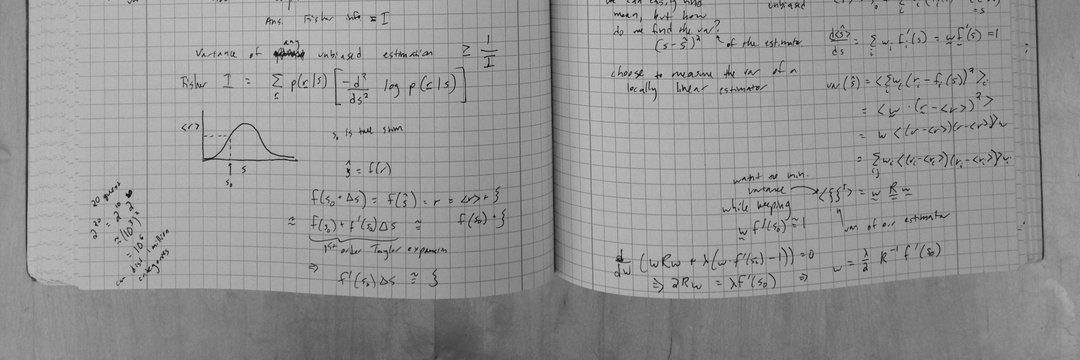 Ans. Fisher info = I
Variance of any unbiased estimation ≥ 1/I
Fisher I = Σ p(r|s) [ -d²/ds² log p(r|s) ]
<r>
s
s₀
s₀ is true stim
ŝ = f(r)
f(s₀+Δs) = f(ŝ) = r = <r> + ξ
≈ f(s₀) + f'(s₀)Δs ≅ f(s₀) + ξ
1st order Taylor expansion
⇒ f'(s₀)Δs ≅ ξ
20 questions
2²⁰ = 2¹⁰ 2¹⁰
≅ (10³)²
= 10⁶
can dist 1 million
categories
we can easily find
mean, but how
do we find the var?
(s-ŝ)² of the estimator
unbiased
choose to measure the var of a
locally linear estimator
d<ŝ>/ds = Σ wᵢ fᵢ'(s) = w f'(s) = 1
var(ŝ) = <Σ wᵢ(rᵢ - fᵢ(s))²>
= <w · (r - <r>)²>
= w <(r-<r>)(r-<r>)> w
= Σ wᵢ <(rᵢ-<rᵢ>)(rⱼ-<rⱼ>)> wⱼ
want to min.
variance → <ξξᵀ> = w R w
while keeping
w f'(s₀) ≅ 1
var of our estimator
d/dw (wRw + λ(w·f'(s₀)-1)) = 0
⇒ 2Rw = λf'(s₀) ⇒ w = λ/2 R⁻¹ f'(s₀)